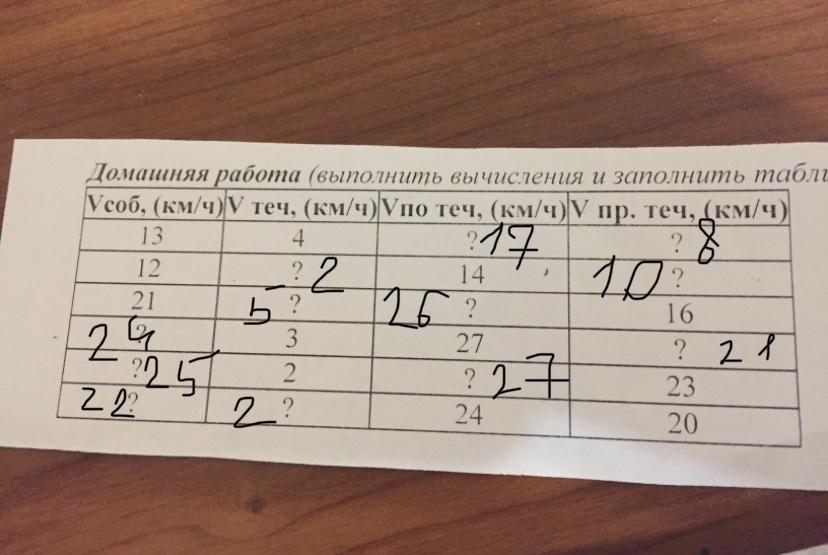 Домашняя работа (выполнить вычисления и заполнить табли
Vсоб, (км/ч) V теч, (км/ч) Vпо теч, (км/ч) V пр. теч, (км/ч)
13 4 ? 17 ? 8
12 ? 2 14 10 ?
21 5 ? 26 ? 16
24 ? 3 27 ? 21
? 25 2 ? 27 23
22 ? 2 ? 24 20